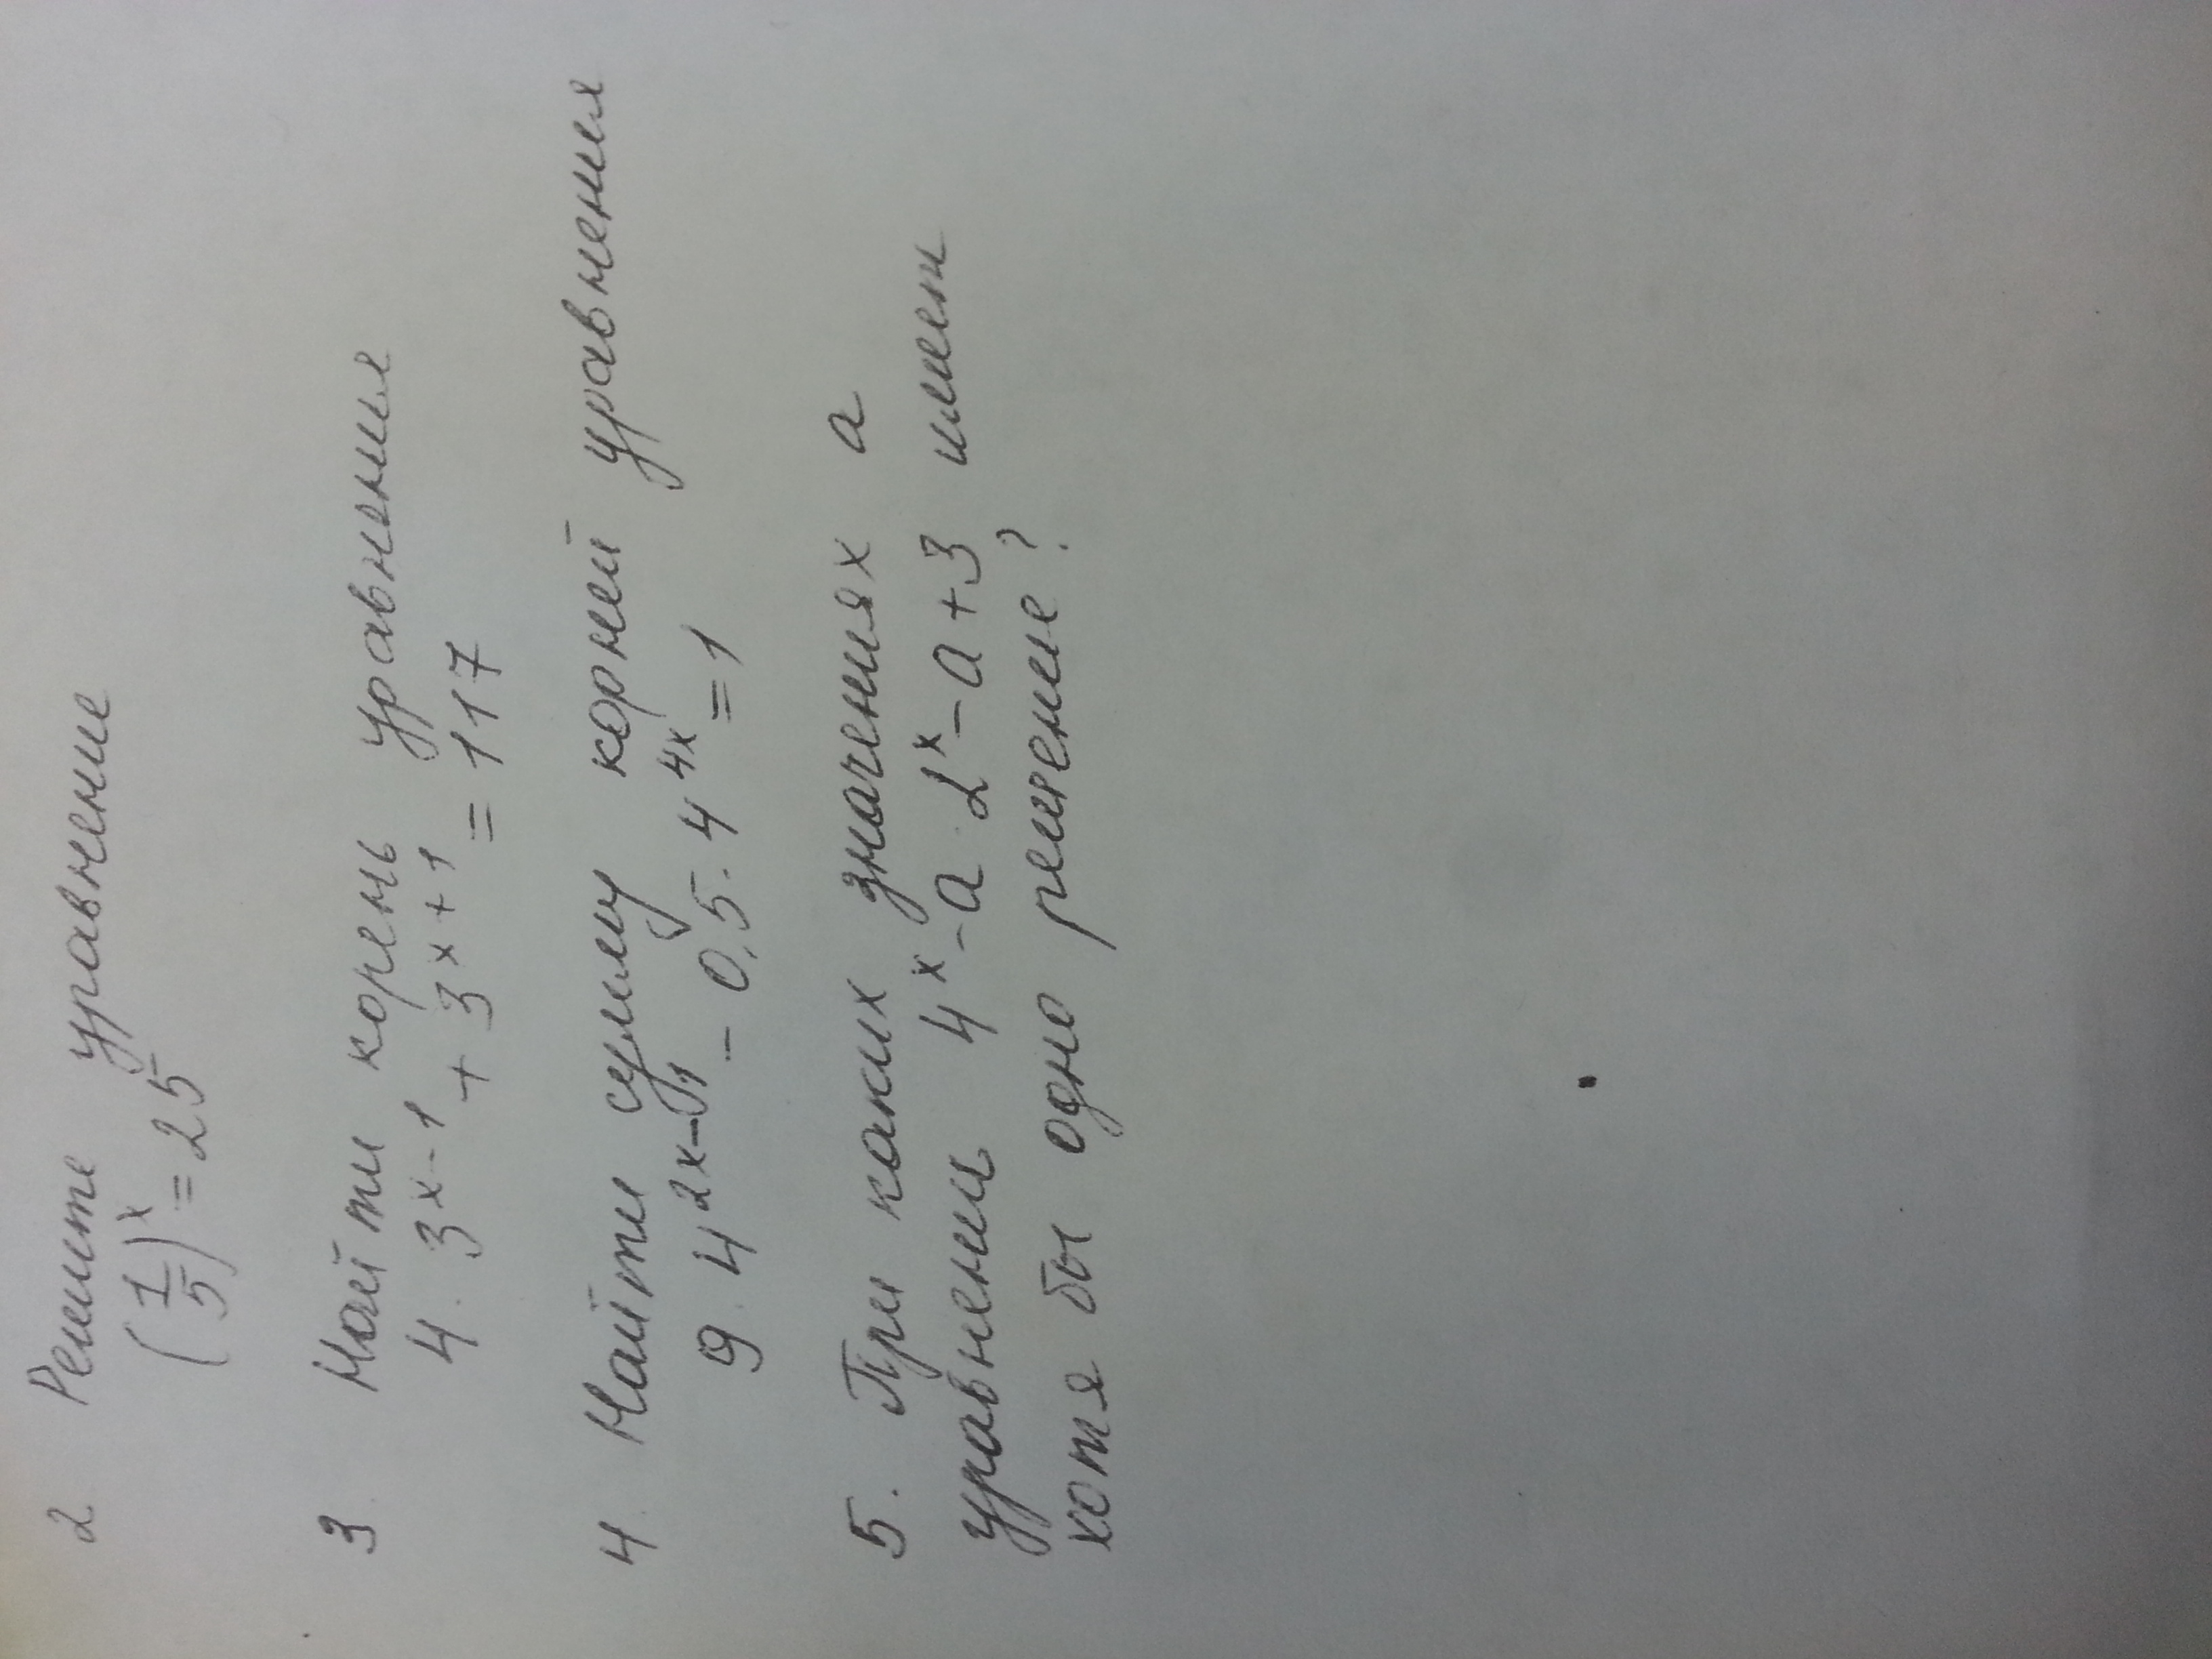 2 Решите уравнение
(1/5)^x = 25
3 Найти корень уравнения
4 · 3^(x-1) + 3^(x+1) = 117
4. Найти сумму корней уравнения
9 · 4^(2x-1) - 0,5 · 4^(4x) = 1
5. При каких значениях a
уравнении 4^x - a · 2^x - a + 3 имеет
хотя бы одно решение?